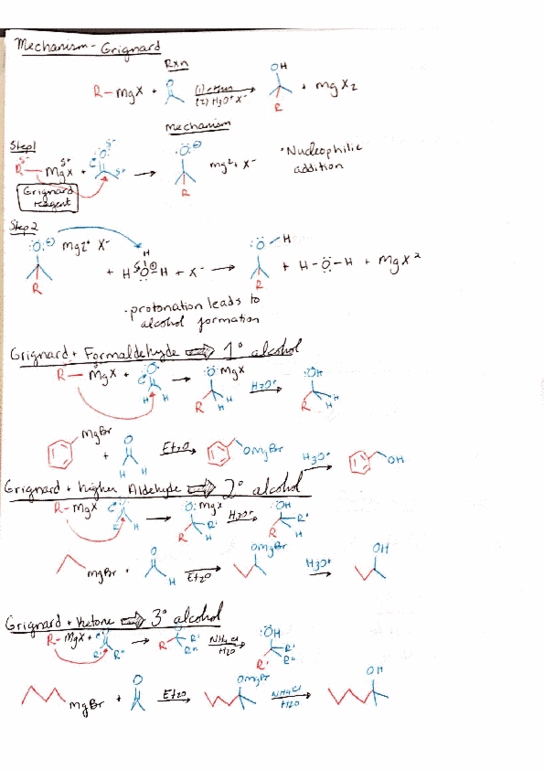 Mechanism - Grignard
Rxn
R-MgX + O (1) ether (2) H3O+ X- → OH R + mg X2
Mechanism
Step 1
R δ- MgX δ+ + O δ- δ+ → :Ö: ⊖ R mg2+ X-
• Nucleophilic addition
Grignard reagent
Step 2
:Ö: ⊖ Mg2+ X- R + H-O⊕-H H + X- → :Ö-H R + H-Ö-H + MgX2
• protonation leads to
alcohol formation
Grignard + Formaldehyde ⇒ 1° alcohol
R-MgX + O H H → O MgX R H H H3O+ → OH R H H
MgBr + O H H Et2O → OMgBr H3O+ → OH
Grignard + higher Aldehyde ⇒ 2° alcohol
R-MgX R' H → O: MgX R R' H H3O+ → OH R R' H
MgBr + O H Et2O → OMgBr H3O+ → OH
Grignard + Ketone ⇒ 3° alcohol
R-MgX + R' R" → R R' R" NH4Cl H2O → :OH R' R' R"
MgBr + O Et2O → OMgBr NH4Cl H2O → OH